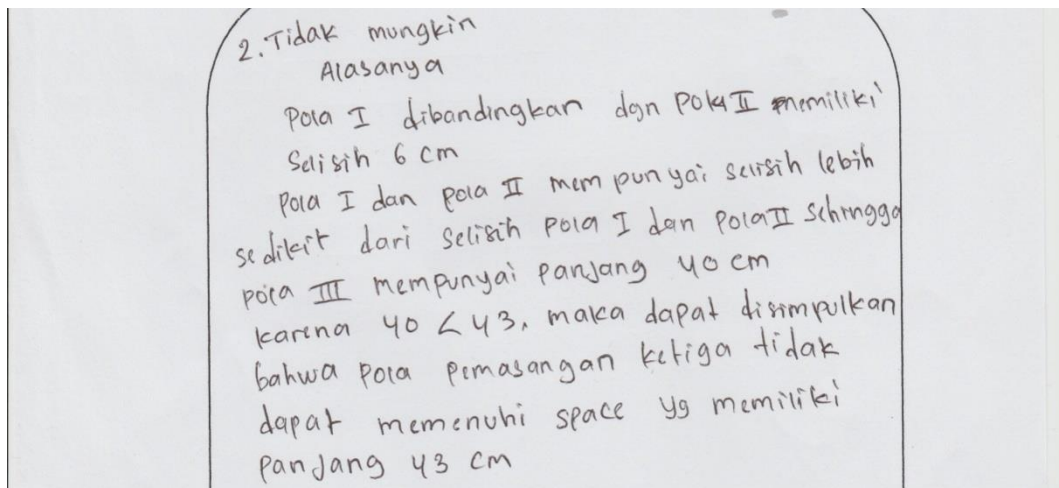 2. Tidak mungkin
Alasanya
Pola I dibandingkan dgn Pola II memiliki
Selisih 6 cm
Pola I dan pola II mempunyai selisih lebih
sedikit dari selisih pola I dan Pola II Sehingga
pola III mempunyai panjang 40 cm
karena 40 < 43, maka dapat disimpulkan
bahwa pola pemasangan ketiga tidak
dapat memenuhi space yg memiliki
panjang 43 cm